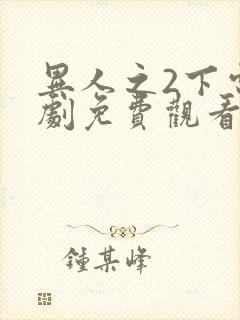 異人之2下
劇免費觀看
鍾某峰